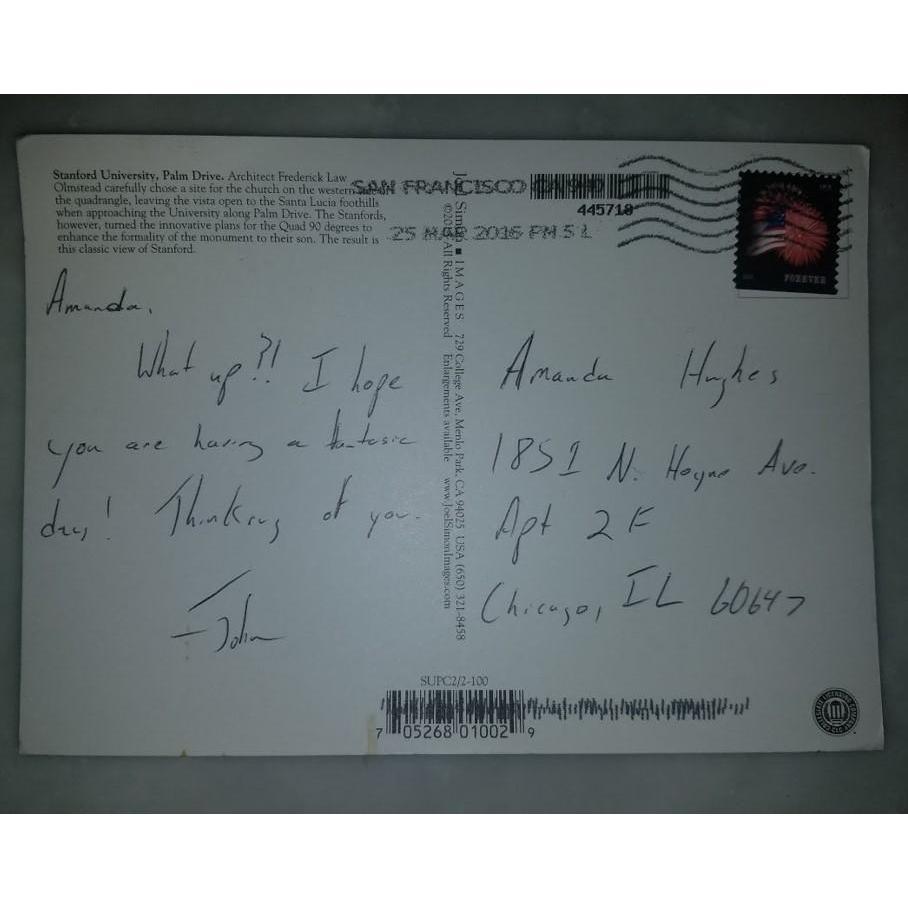 Stanford University, Palm Drive. Architect Frederick Law
Olmstead carefully chose a site for the church on the western
the quadrangle, leaving the vista open to the Santa Lucia foothills
when approaching the University along Palm Drive. The Stanfords,
however, turned the innovative plans for the Quad 90 degrees to
enhance the formality of the monument to their son. The result is
this classic view of Stanford.
SAN FRANCISCO CA
445718
25 MAR 2016 PM 5 L
FOREVER
Amanda,
What up?! I hope
you are having a fantasic
day! Thinking of you.
- John
Joel Simon ■ IMAGES 729 College Ave. Menlo Park, CA 94025 USA (650) 321-8458
All Rights Reserved Enlargements available www.JoelSimonImages.com
Amanda Hughes
1851 N. Hoyne Ave.
Apt 2F
Chicago, IL 60647
SUPC2/2-100
7 05268 01002 9